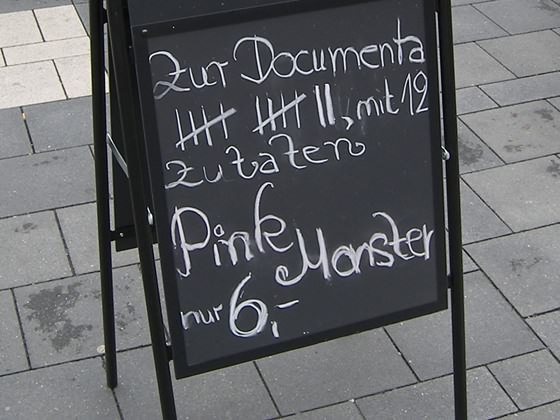 Zur Documenta
卌 卌 II, mit 12
zutaten
Pink Monster
nur 6,-